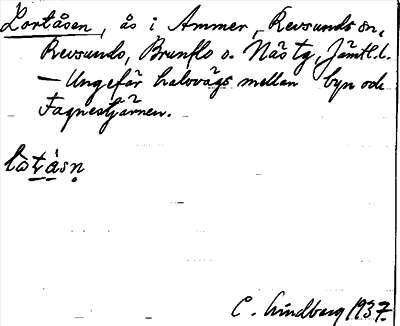 Lortåsen, ås i Ammer, Revsunds sn,
Revsunds, Brunflo o. Näs tg, Jämtl. l.
— Ungefär halvvägs mellan byn och
Fagnestjärnen.
lòtåsn
C. Lindberg 1937.